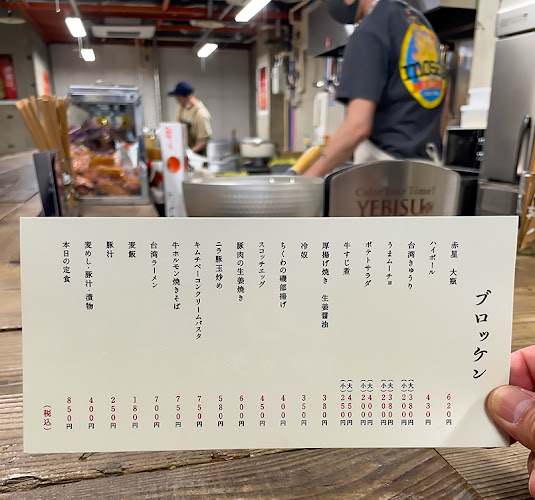 ブロッケン
赤星 大瓶 620円
ハイボール 430円
台湾きゅうり (大)380円 (小)200円
うまムーチョ (大)380円 (小)200円
ポテトサラダ (大)400円 (小)200円
牛すじ煮 (大)450円 (小)250円
厚揚げ焼き 生姜醤油 380円
冷奴 350円
ちくわの磯部揚げ 400円
スコッチエッグ 450円
豚肉の生姜焼き 600円
ニラ豚玉炒め 580円
キムチベーコンクリームパスタ 750円
牛ホルモン焼きそば 750円
台湾ラーメン 700円
麦飯 180円
豚汁 250円
麦めし・豚汁・漬物 400円
本日の定食 850円
(税込)
Color Your Time!
YEBISU